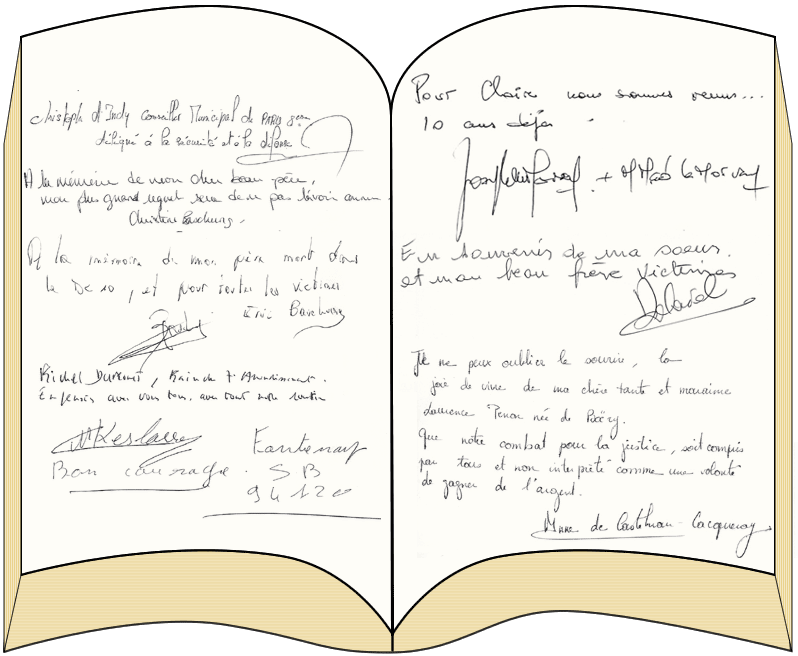 Christophe d'Indy Conseiller Municipal de PARIS 8ème
délégué à la sécurité et à la défense
A la mémoire de mon cher beau père,
mon plus grand regret sera de ne pas l'avoir connu
Christine Baschung.
A la mémoire de mon père mort dans
le DC 10, et pour toutes les victimes
Eric Baschung
Michel Dumont, Mairie
En pensée avec vous tous, avec tout notre soutien
Bon courage.
Fontenay
S B
94120
Pour Claire nous sommes venus...
10 ans déjà
+
En souvenir de ma soeur.
et mon beau frère victimes
Je ne peux oublier le sourire, la
joie de vivre de ma chère tante et marraine
Laurence Penon née de
Que notre combat pour la justice, soit compris
par tous et non interprété comme une volonté
de gagner de l'argent.
Anne de Castelnau - Cacqueray